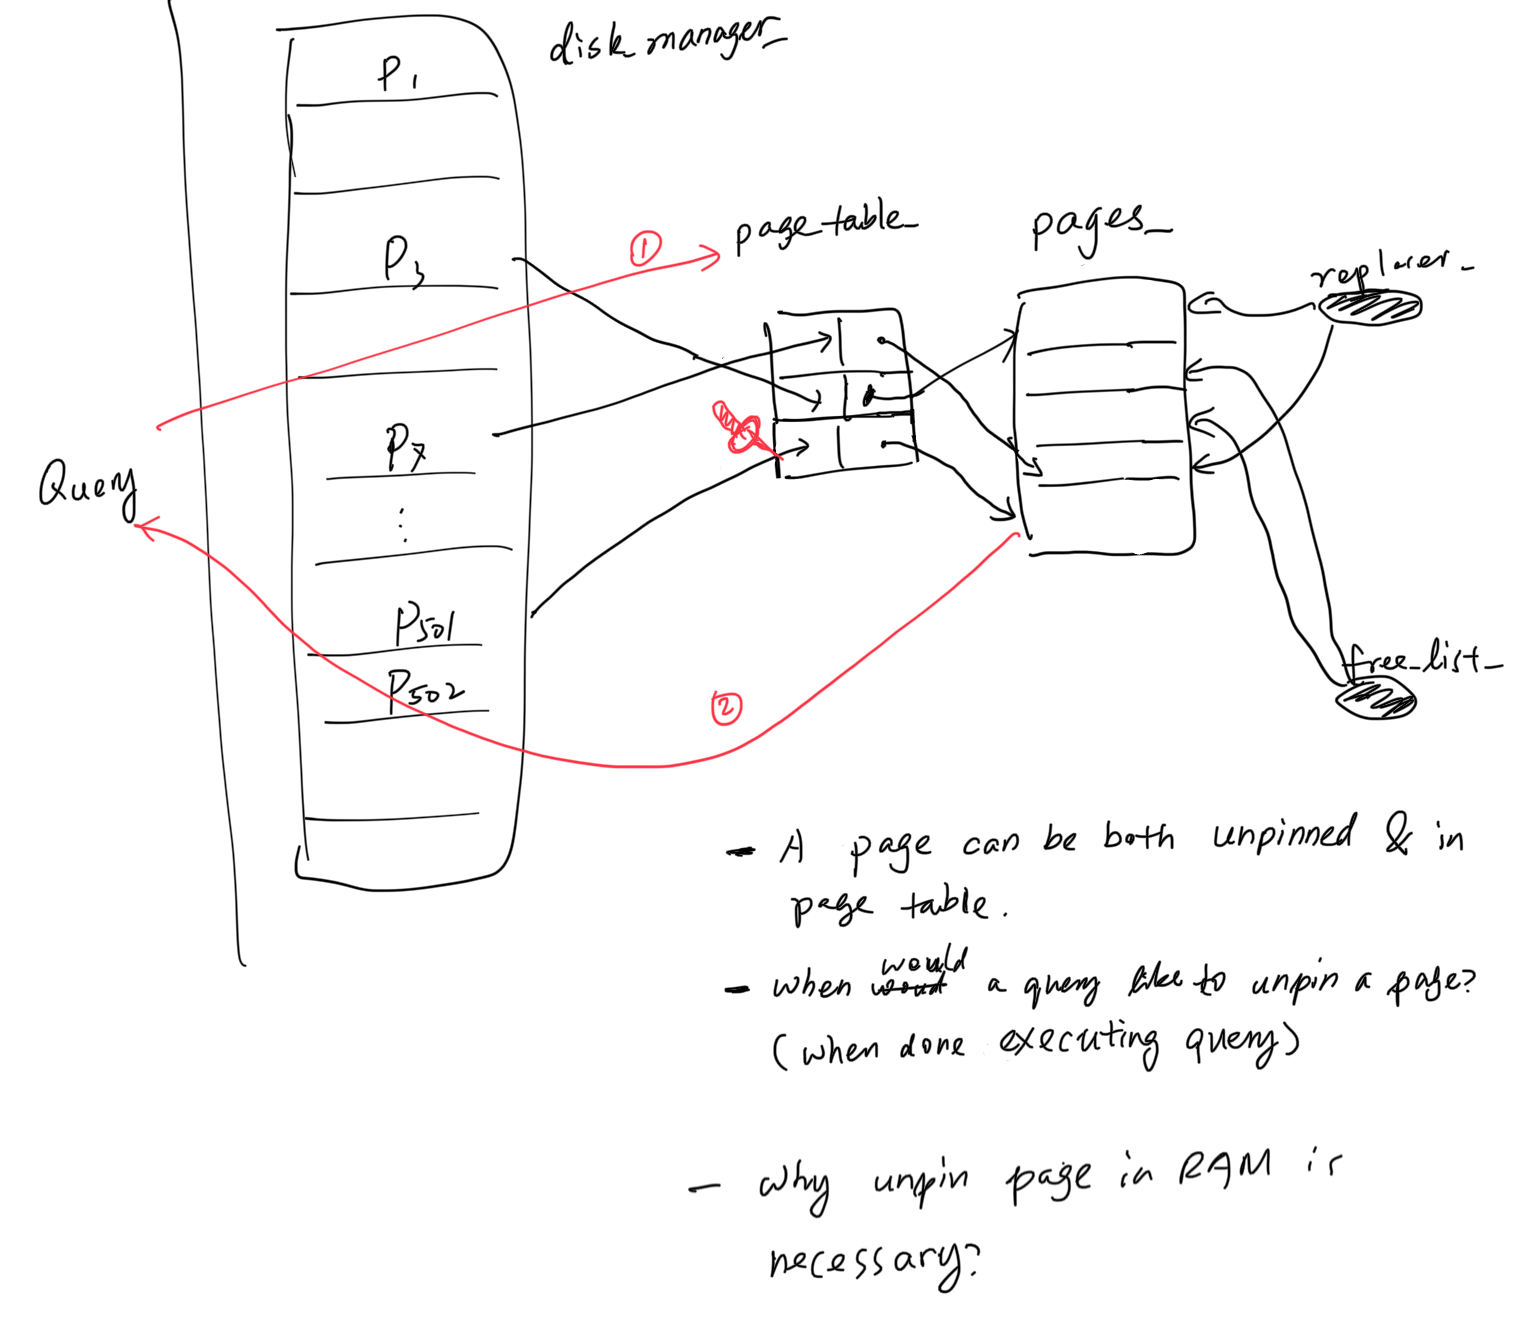 disk_manager_
P1
P3
P7
⋮
P501
P502
Query
①
page_table_
pages_
replacer_
free_list_
②
- A page can be both unpinned & in
page table.
- when would a query like to unpin a page?
(when done executing query)
- Why unpin page in RAM is
necessary?